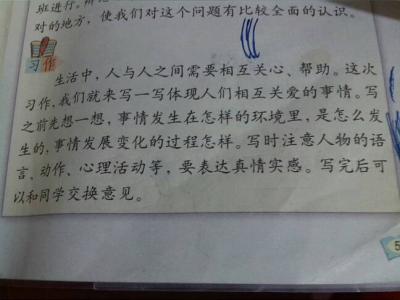 班进行。
对的地方，使我们对这个问题有比较全面的认识。
习作
生活中，人与人之间需要相互关心、帮助。这次
习作，我们就来写一写体现人们相互关爱的事情。写
之前先想一想，事情发生在怎样的环境里，是怎么发
生的，事情发展变化的过程怎样。写时注意人物的语
言、动作、心理活动等，要表达真情实感。写完后可
以和同学交换意见。
5